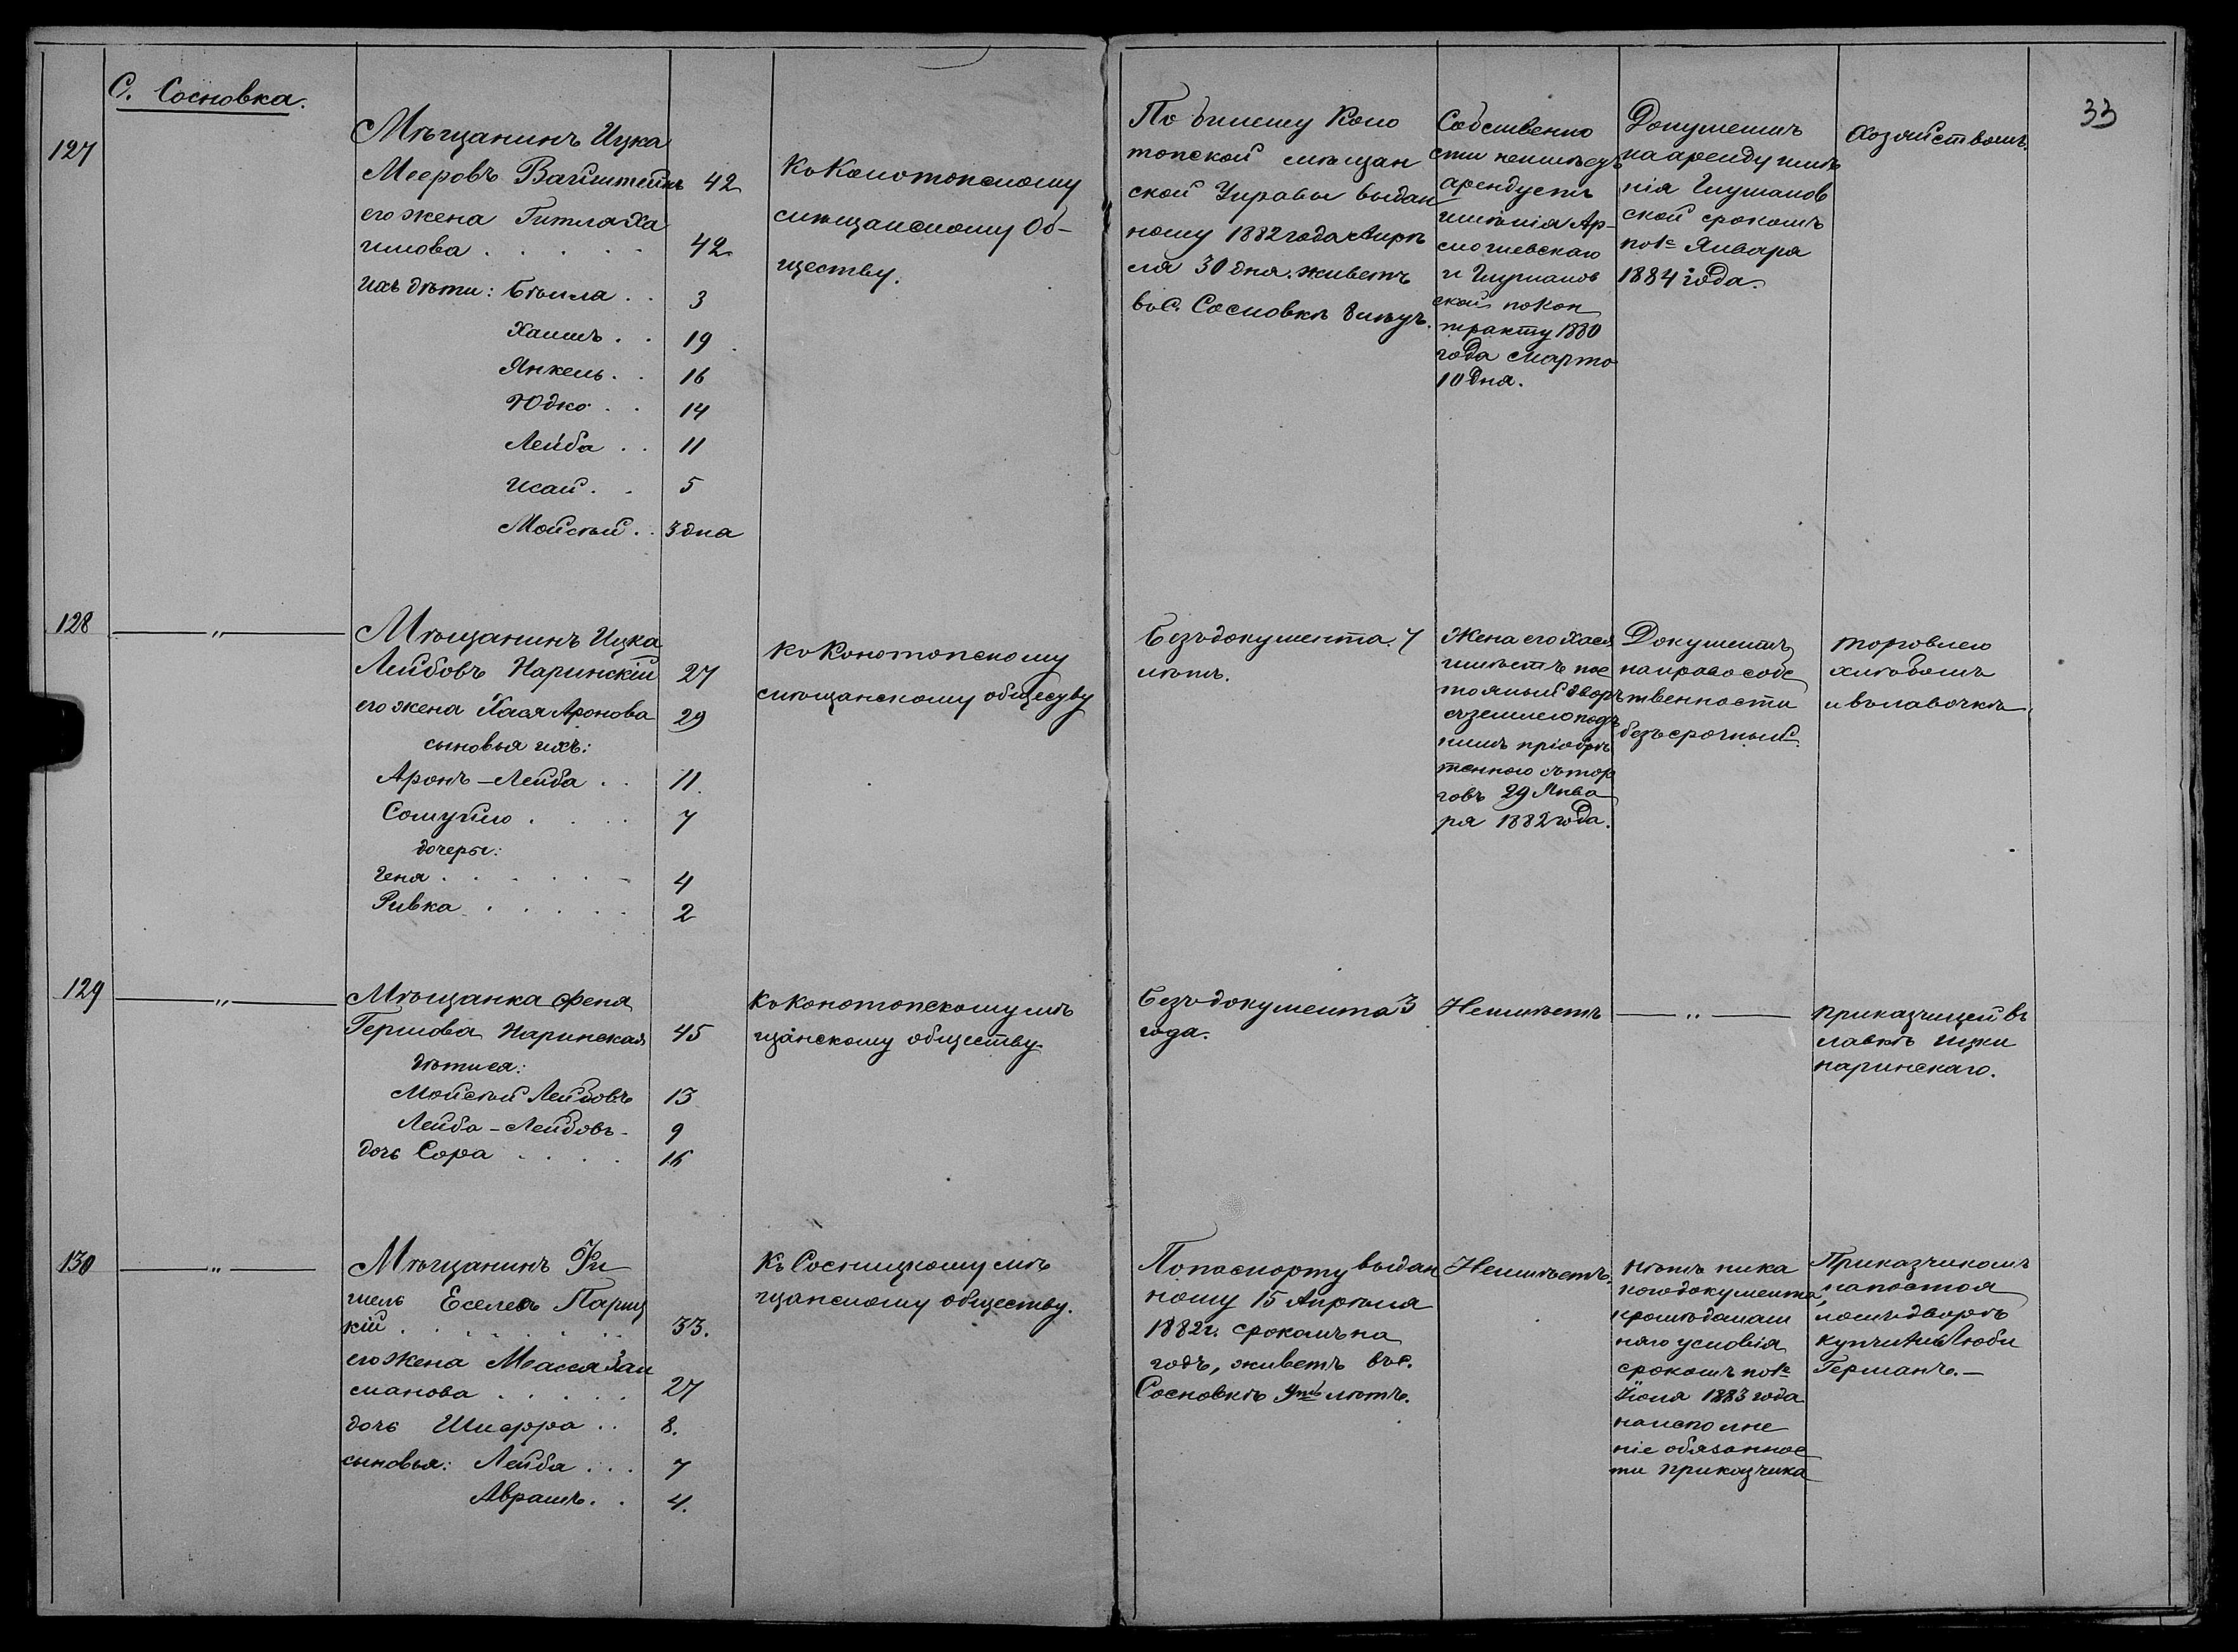 33
С. Сосновка.
127
Мѣщанинъ Ицка
Мееровъ Вайнштейнъ 42
его жена Гитля Ха
имова . . . . . 42
ихъ дѣти: Бѣйла . . 3
Хаимъ . . 19
Янкель . . 16
Юдко . . 14
Лейба . . 11
Исай . . 5
Мойсей . . 3 дня
Къ Конотопскому
мѣщанскому Об-
ществу.
По билету Коно
топской мѣщан
ской Управы выдан
ному 1882 года Апрѣ
ля 30 дня. живетъ
въ С. Сосновкѣ
Собственно
сти неимѣетъ
арендуетъ
имѣнія
и
ской по кон
тракту 1880
года Марта
10 дня.
Документъ
на аренду имѣ
нія
ской срокомъ
по 1е Января
1884 года.
Хозяйствомъ.
128 — „ —
Мѣщанинъ Ицка
Лейбовъ Наринскій 27
его жена Хася Аронова 29
сыновья ихъ:
Аронъ-Лейба . . 11.
Сомуйло . . . . 7
дочеры:
Геня . . . . . . 4
Ривка . . . . . 2
Къ Конотопскому
мѣщанскому обществу
Безъ документа 7
лѣтъ.
Жена его Хася
имѣетъ пос
тоялый дворъ
съ землею подъ
нимъ пріобрѣ
тенного съ тор
говъ 29 Янва
ря 1882 года.
Документъ
на право собс
твенности
безъ срочный.
торговлею
хлѣбомъ
и въ лавочкѣ
129 — „ —
Мѣщанка Феня
Гершова Наринская 45
дѣти ея:
Мойсей Лейбовъ 13
Лейба-Лейбовъ- 9
дочь Сора . . . . 16
Къ Конотопскому мѣ
щанскому обществу.
Безъ документа 3
года.
Неимѣетъ
— „ —
приказчицей въ
лавкѣ Ицки
наринскаго.
130 — „ —
Мѣщанинъ Фи
шель Еселевъ Париц
кій . . . . . . . 33.
его жена Мьася Зал
манова . . . . . 27
дочь Шифра . . 8.
сыновья: Лейба . . . 7
Аврамъ . . 4.
Къ Сосницкому мѣ
щанскому обществу.
По паспорту выдан
ному 15 Апрѣля
1882 г. срокомъ на
годъ, живетъ въ с.
Сосновкѣ лѣтъ.
Неимѣетъ.
нѣтъ ника
кого документа,
кромѣ домаш
няго условія
срокомъ по 1е
Іюля 1883 года
на исполне
ніе обязаннос
ти приказчика
Приказчикомъ
на постоя
ломъ дворѣ
купчихи Люби
Германъ.—